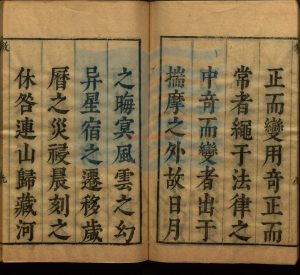 正而變用奇正而
常者繩于法律之
中奇而變者出于
揣摩之外故日月
之晦冥風雲之幻
异星宿之遷移歲
曆之災祲晨刻之
休咎連山歸藏河